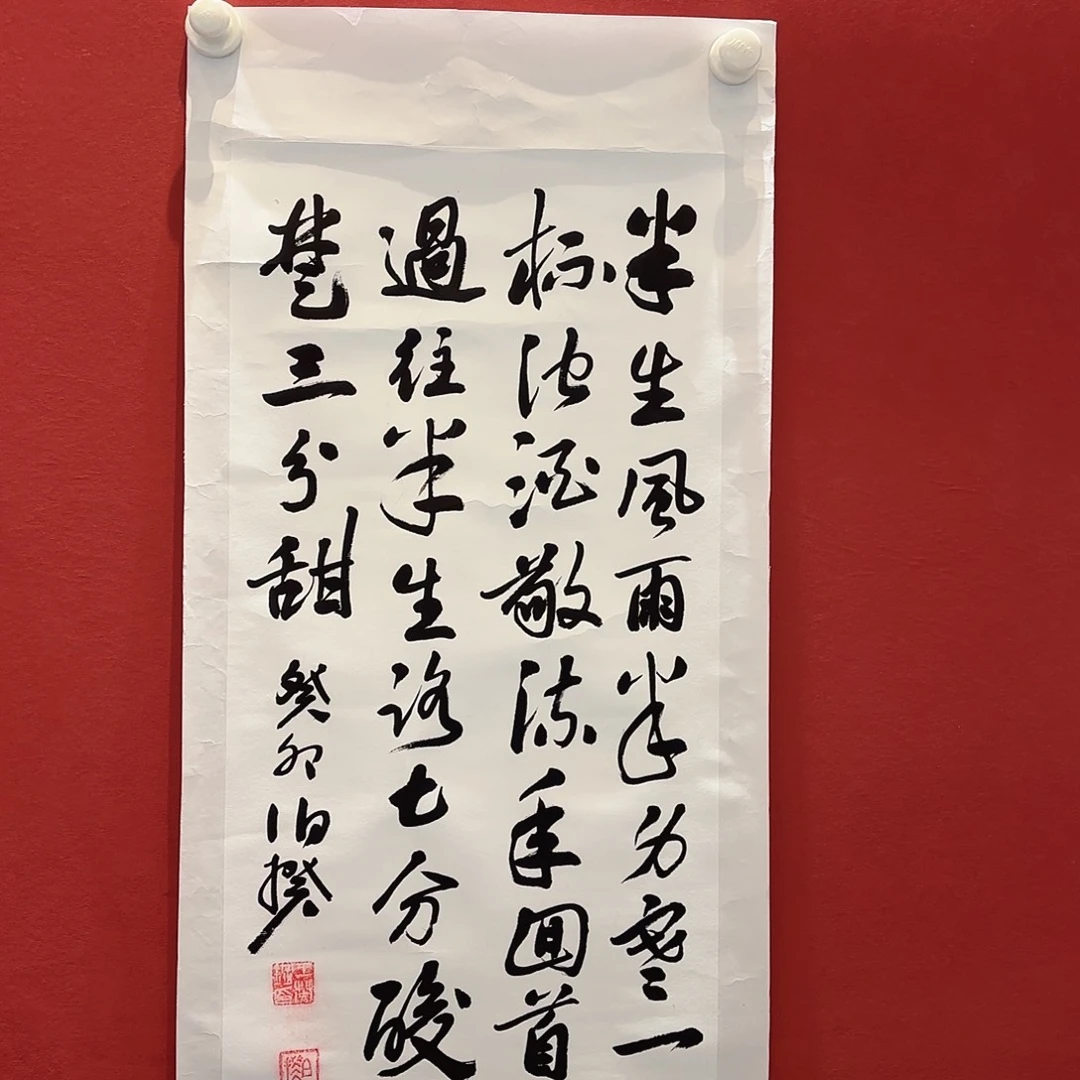 半生風雨半身寒一
杯浊酒敬流年回首
過往半生路七分酸
楚三分甜
癸卯伯揆